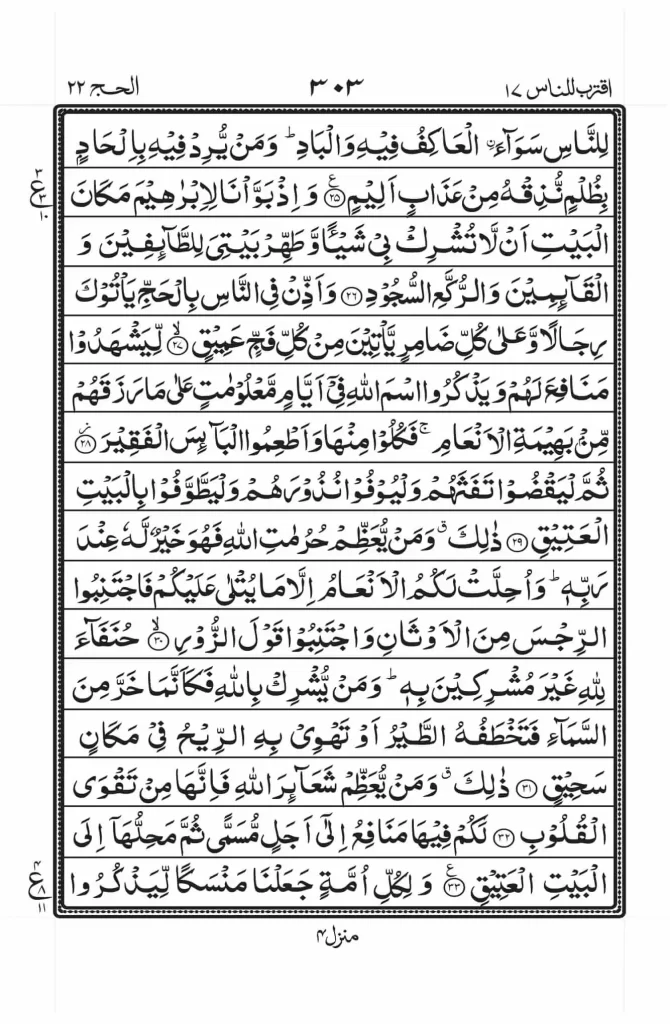 اقترب للناس ١٧ ٣٠٣ الحج ٢٢
لِلنَّاسِ سَوَآءَ ۨ الۡعَاكِفُ فِيۡهِ وَالۡبَادِ ؕ وَمَنۡ يُّرِدۡ فِيۡهِ بِاِلۡحَادٍۭ
بِظُلۡمٍ نُّذِقۡهُ مِنۡ عَذَابٍ اَلِيۡمٍ ﴿۲۵﴾ ع وَاِذۡ بَوَّاۡنَا لِاِبۡرٰهِيۡمَ مَكَانَ
الۡبَيۡتِ اَنۡ لَّا تُشۡرِكۡ بِىۡ شَيۡـًٔـا وَّطَهِّرۡ بَيۡتِىَ لِلطَّآٮِٕفِيۡنَ وَ
الۡقَآٮِٕمِيۡنَ وَالرُّكَّعِ السُّجُوۡدِ ﴿۲۶﴾ وَاَذِّنۡ فِى النَّاسِ بِالۡحَجِّ يَاۡتُوۡكَ
رِجَالًا وَّعَلٰى كُلِّ ضَامِرٍ يَّاۡتِيۡنَ مِنۡ كُلِّ فَجٍّ عَمِيۡقٍ ۙ‏ ﴿۲۷﴾ لِّيَشۡهَدُوۡا
مَنَافِعَ لَهُمۡ وَيَذۡكُرُوا اسۡمَ اللّٰهِ فِىۡۤ اَيَّامٍ مَّعۡلُوۡمٰتٍ عَلٰى مَا رَزَقَهُمۡ
مِّنۡۢ بَهِيۡمَةِ الۡاَنۡعَامِ ۚ فَكُلُوۡا مِنۡهَا وَاَطۡعِمُوا الۡبَآٮِٕسَ الۡفَقِيۡرَ ﴿۲۸﴾
ثُمَّ لۡيَقۡضُوۡا تَفَثَهُمۡ وَلۡيُوۡفُوۡا نُذُوۡرَهُمۡ وَلۡيَطَّوَّفُوۡا بِالۡبَيۡتِ
الۡعَتِيۡقِ ﴿۲۹﴾ ذٰلِكَ ۛ وَمَنۡ يُّعَظِّمۡ حُرُمٰتِ اللّٰهِ فَهُوَ خَيۡرٌ لَّهٗ عِنۡدَ
رَبِّهٖ ؕ وَاُحِلَّتۡ لَـكُمُ الۡاَنۡعَامُ اِلَّا مَا يُتۡلٰى عَلَيۡكُمۡ فَاجۡتَنِبُوا
الرِّجۡسَ مِنَ الۡاَوۡثَانِ وَاجۡتَنِبُوۡا قَوۡلَ الزُّوۡرِ ۙ‏ ﴿۳۰﴾ حُنَفَآءَ
لِلّٰهِ غَيۡرَ مُشۡرِكِيۡنَ بِهٖ ؕ وَمَنۡ يُّشۡرِكۡ بِاللّٰهِ فَكَاَنَّمَا خَرَّ مِنَ
السَّمَآءِ فَتَخۡطَفُهُ الطَّيۡرُ اَوۡ تَهۡوِىۡ بِهِ الرِّيۡحُ فِىۡ مَكَانٍ
سَحِيۡقٍ ﴿۳۱﴾ ذٰلِكَ ۛ وَمَنۡ يُّعَظِّمۡ شَعَآٮِٕرَ اللّٰهِ فَاِنَّهَا مِنۡ تَقۡوَى
الۡقُلُوۡبِ ﴿۳۲﴾ لَـكُمۡ فِيۡهَا مَنَافِعُ اِلٰٓى اَجَلٍ مُّسَمًّى ثُمَّ مَحِلُّهَاۤ اِلَى
الۡبَيۡتِ الۡعَتِيۡقِ ﴿۳۳﴾ ع وَلِكُلِّ اُمَّةٍ جَعَلۡنَا مَنۡسَكًا لِّيَذۡكُرُوا
منزل ۴